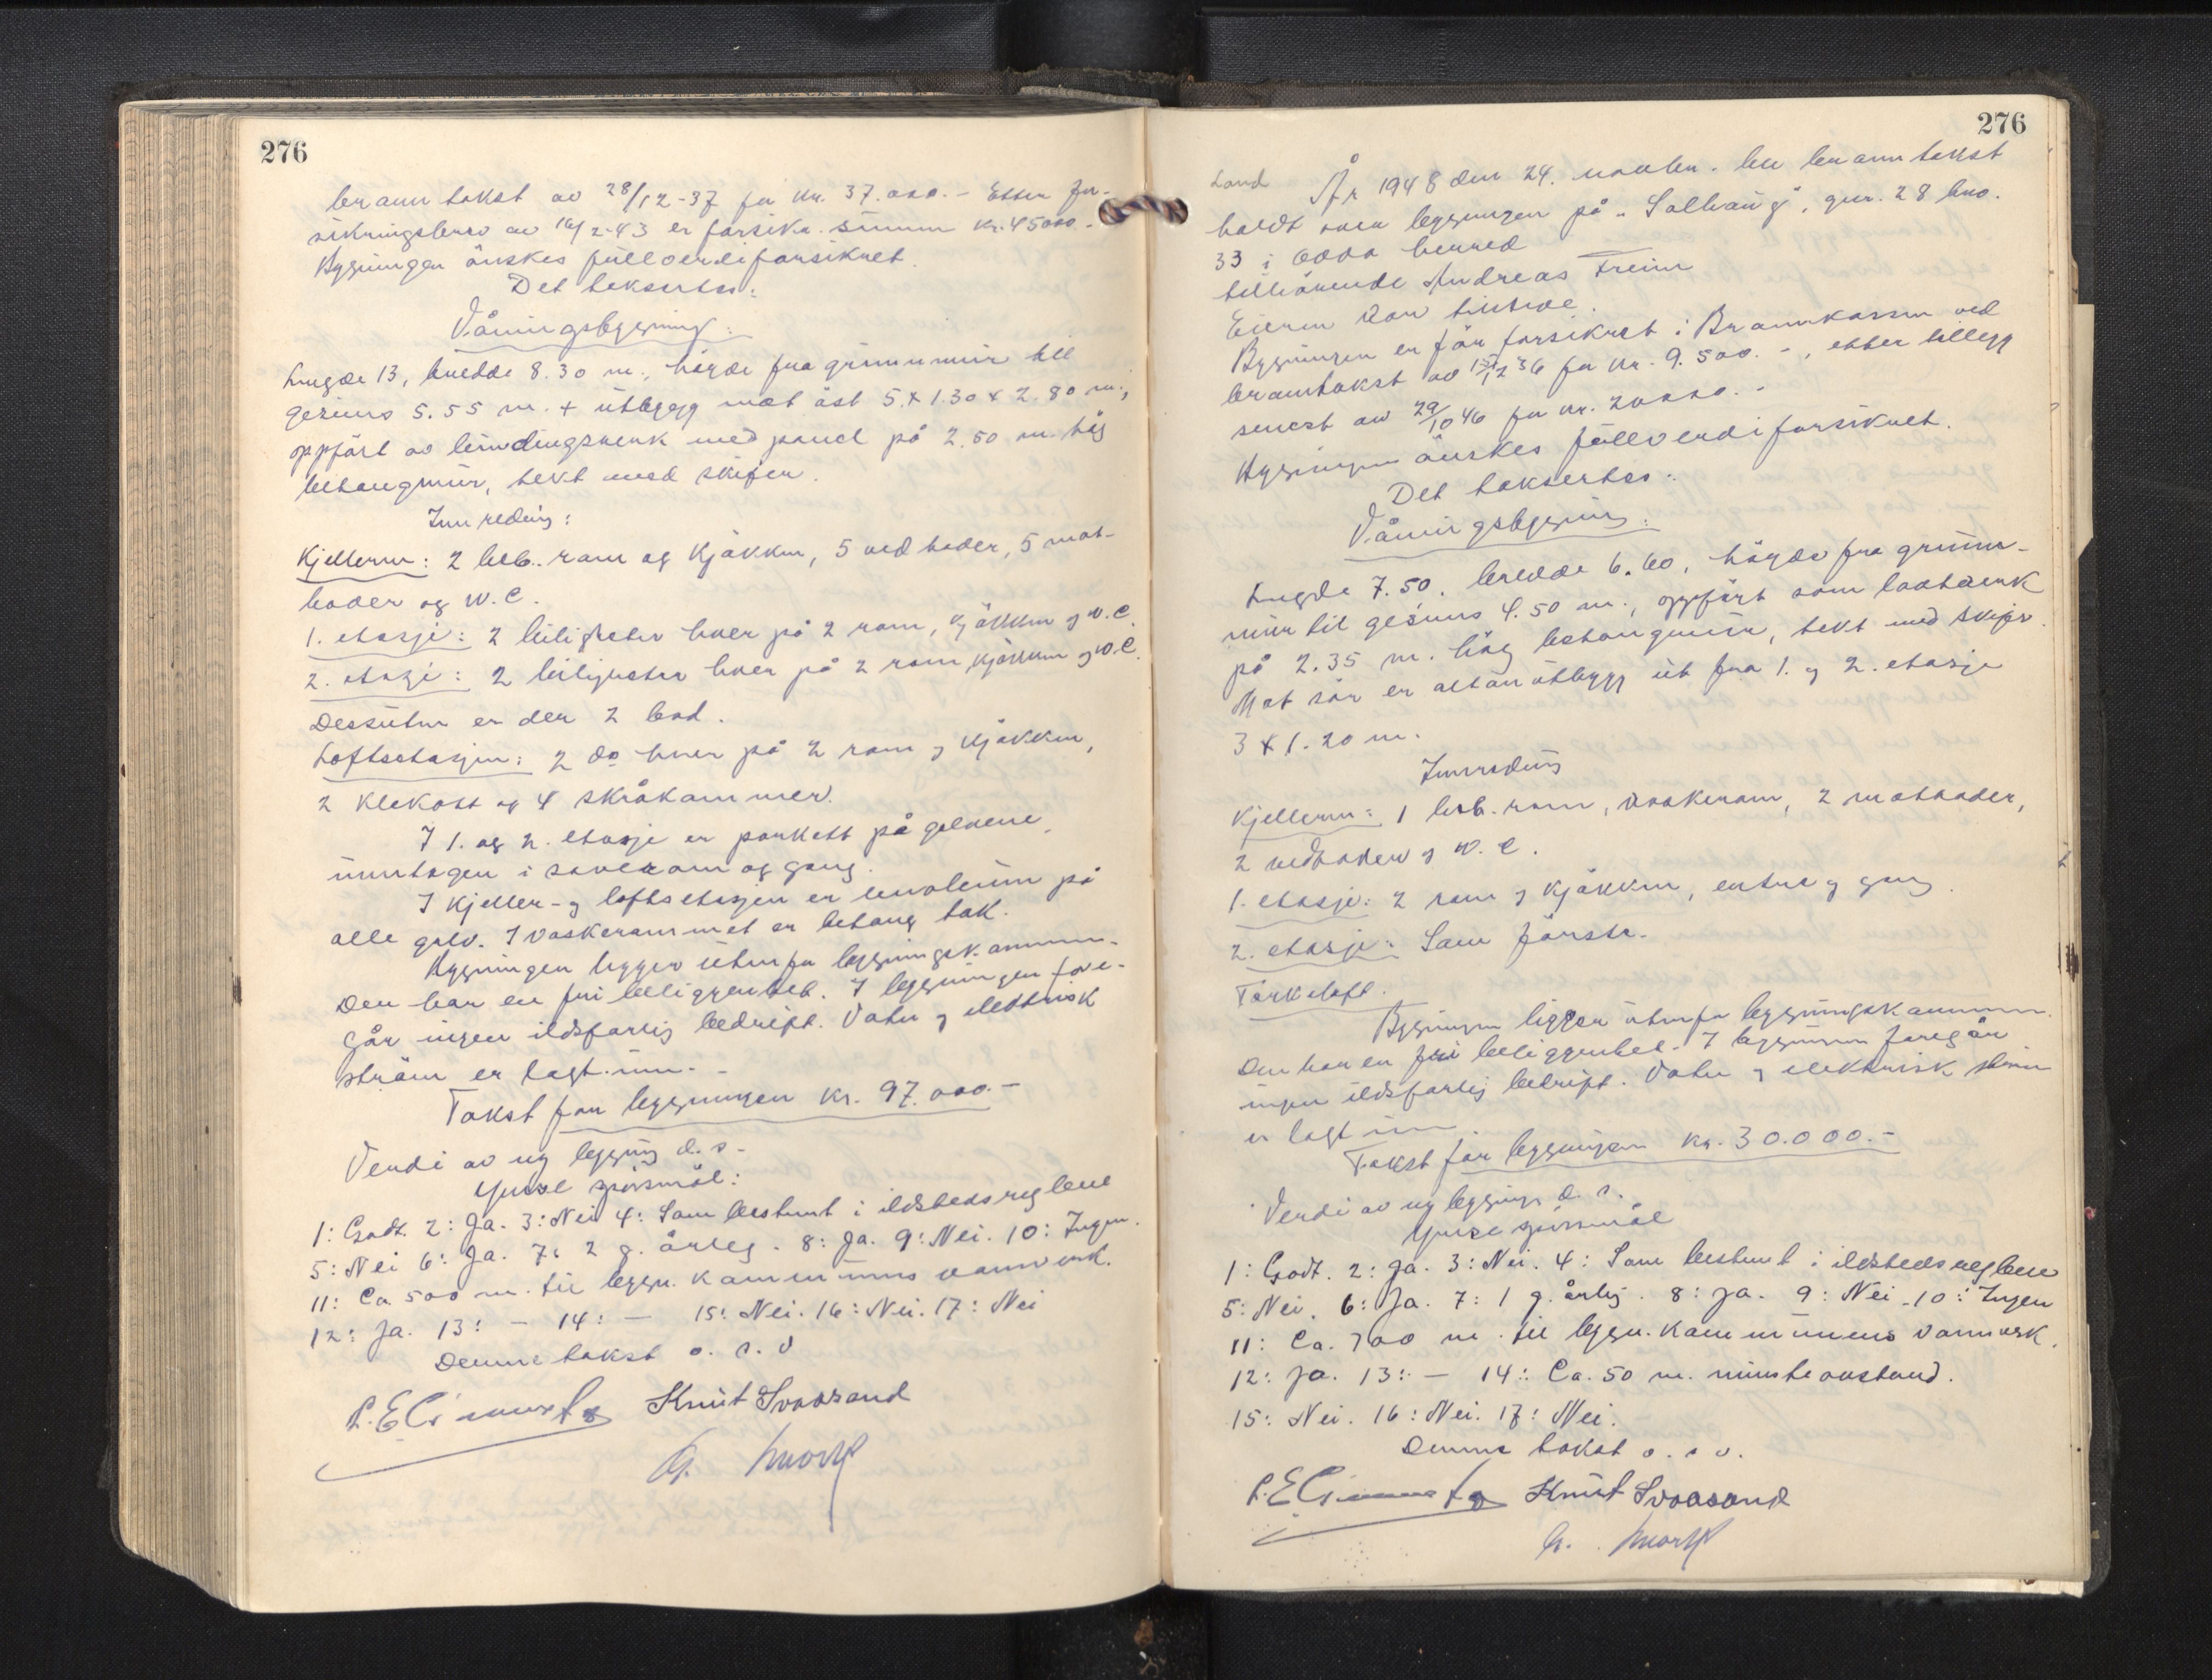 276
branntakst av 28/12-37 for kr. 37.000.- Etter for-
sikringsbrev av 16/2-43 er forsikr. summen kr. 45000.-
Bygningen ønskes fullverdiforsikret.
Det taksertes:
Våningsbygning:
Lengde 13, bredde 8.30 m., høgde fra grunnmur till
gesims 5.55 m. + utbygg mot øst 5 x 1.30 x 2.80 m.,
oppført av bindingsverk med panel på 2.50 m. høg
betongmur, tekt med skifer.
Innreding:
Kjelleren: 2 beb. rom og kjøkken, 5 vedboder, 5 mat-
boder og W.C.
1. etasje: 2 leiligheter hver på 2 rom, kjøkken og W.C.
2. etasje: 2 leiligheter hver på 2 rom, kjøkken og W.C.
Dessuten er der 2 bad.
Loftsetasjen: 2 do hver på 2 rom og kjøkken,
2 klekott og 4 skråkammer.
I 1. og 2. etasje er parkett på golvene,
unntagen i soverom og gang.
I kjeller- og loftsetasjen er linoleum på
alle golv. I vaskerommet er betong tak.
Bygningen ligger utenfor bygningskommunen.
Den har en fri beliggenhet. I bygningen fore-
går ingen ildsfarlig bedrift. Vatn og elektrisk
strøm er lagt inn.-
Takst for bygningen kr. 97.000.-
Verdi av ny bygning d.s.-
Ymse spørsmål:
1: Godt. 2: Ja. 3: Nei 4: Som bestemt i ildstedsreglene
5: Nei 6: Ja. 7: 2 g. årleg. 8: Ja. 9: Nei. 10: Ingen.
11: Ca 500 m. til bygn. kommunens vannverk.
12: Ja. 13: - 14: - 15: Nei. 16: Nei. 17: Nei
Denne takst o.s.v
Knut Svaasand
276
Land
År 1948 den 24. novbr. ble branntakst
holdt over bygningen på "Solhaug", gnr. 28 bno.
33 i Odda herred
tilhørende Andreas Freim
Eieren var tilstede.
Bygningen er før forsikret i Brannkassen ved
branntakst av 12 36 for kr. 9.500.-, etter tillegg
senest av 29/10 46 for kr. 20000.-
Bygningen ønskes fullverdiforsikret.
Det taksertes:
Våningsbygning:
Lengde 7.50, bredde 6.60, høgde fra grunn-
mur til gesims 4.50 m., oppført som laftverk
på 2.35 m. høg betongmur, tekt med skifer.
Mot sør er altanutbygg ut fra 1. og 2. etasje
3 x 1.20 m.
Innreding
Kjelleren: 1 beb. rom, vaskerom, 2 matboder,
2 vedboder og W.C.
1. etasje: 2 rom og kjøkken, entre og gang.
2. etasje: Som første.
Tørkeloft.
Bygningen ligger utenfor bygningskommunen.
Den har en fri beliggenhet. I bygningen foregår
ingen ildsfarlig bedrift. Vatn og elektrisk strøm
er lagt inn.
Takst for bygningen kr. 30.000.-
Verdi av ny bygning d.s.
Ymse spørsmål
1: Godt. 2: Ja. 3: Nei. 4: Som bestemt i ildstedsreglene
5: Nei. 6: Ja. 7: 1 g. årlig. 8: Ja. 9: Nei. 10: Ingen
11: Ca. 700 m. til bygn. kommunens vannverk.
12: Ja. 13: - 14: Ca. 50 m. minste avstand.
15: Nei. 16: Nei. 17: Nei.
Denne takst o.s.v.
Knut Svaasand